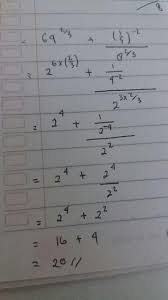 = 64^{2/3} + \frac{(\frac{1}{4})^{-2}}{8^{2/3}}
= 2^{6x(\frac{2}{3})} + \frac{\frac{1}{4^{-2}}}{2^{3x^{2}/3}}
= 2^4 + \frac{\frac{1}{2^{-4}}}{2^2}
= 2^4 + \frac{2^4}{2^2}
= 2^4 + 2^2
= 16 + 4
= 20 //